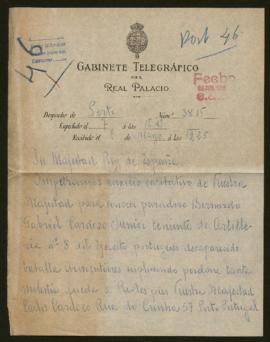 Port 46
46
GABINETE TELEGRÁFICO
DEL
REAL PALACIO.
Fecho
Despacho de Porto Núm. 3815
Expedido el 7 á las
Recibido el de Mayo á las
Su Majestad Rey de España
Imploramos auxilio caritativo de Vuestra
Majestad para conocer paradero Bernardo
Gabriel Cardozo Junior teniente de Artille-
ria nº 8 del Ejercito portugues desaparecido
batalla Armentieres suplicando perdone tanta
molestia queda a Pies Vuestra Majestad
Carlos Cardozo Rua do Cunha 57 Porto Portugal